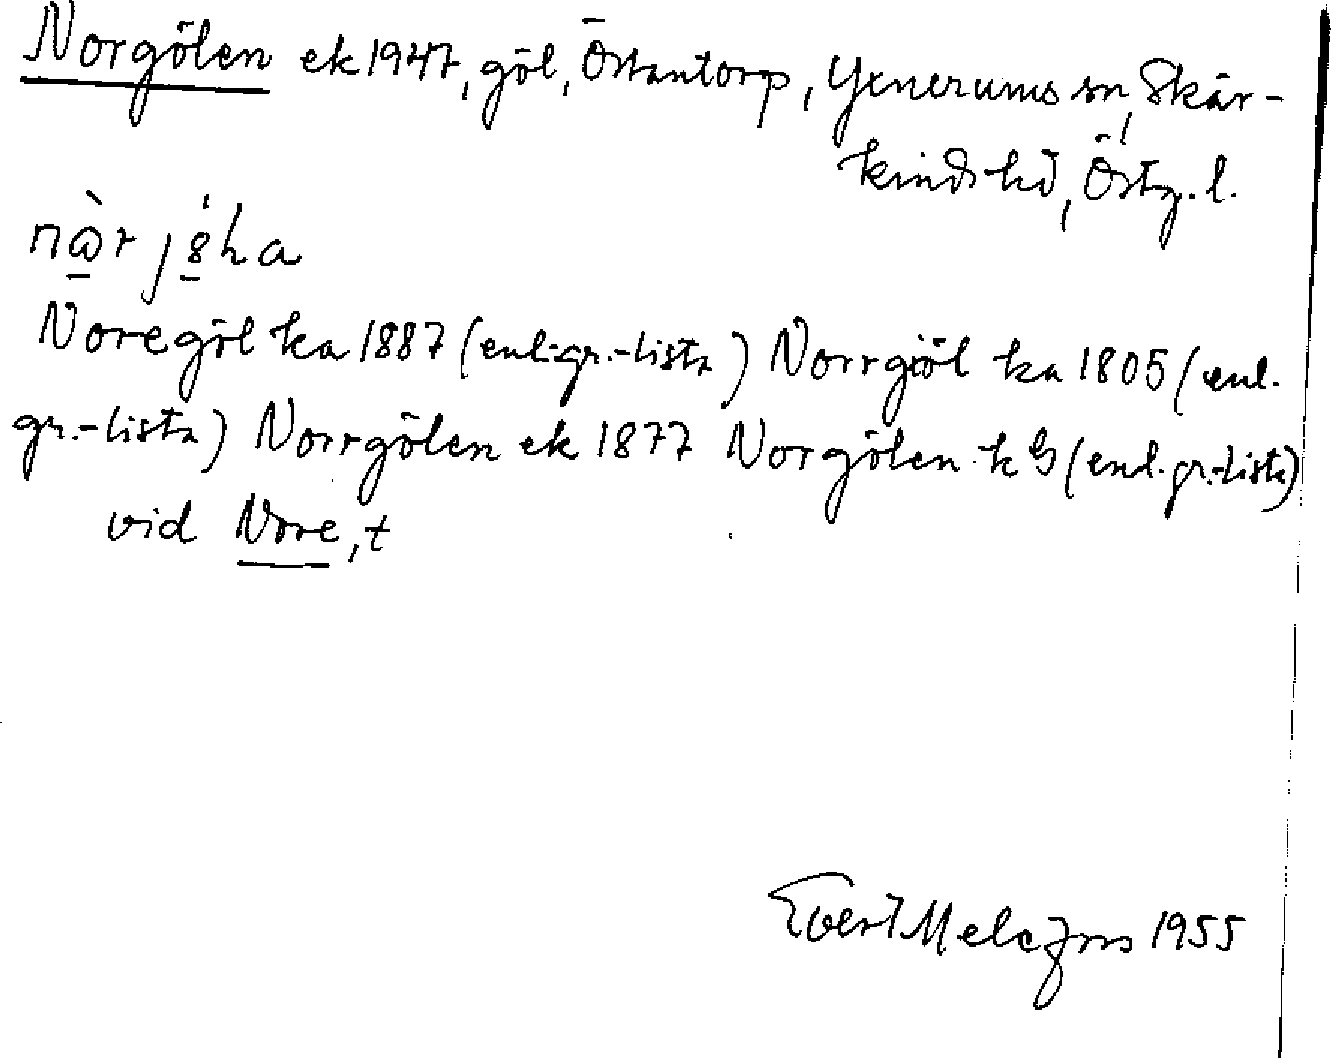 Norgölen ek 1947, göl, Östantorp, Yxnerums sn, Skär-
kinds hd, Östg. l.
Noregöl ka 1887 (enl. gr.-lista) Norrgiöl ka 1805 (enl.
gr.-lista) Norrgölen ek 1877 Norgölen k G (enl. gr.-lista)
vid Nore, t
Evert Melefors 1955